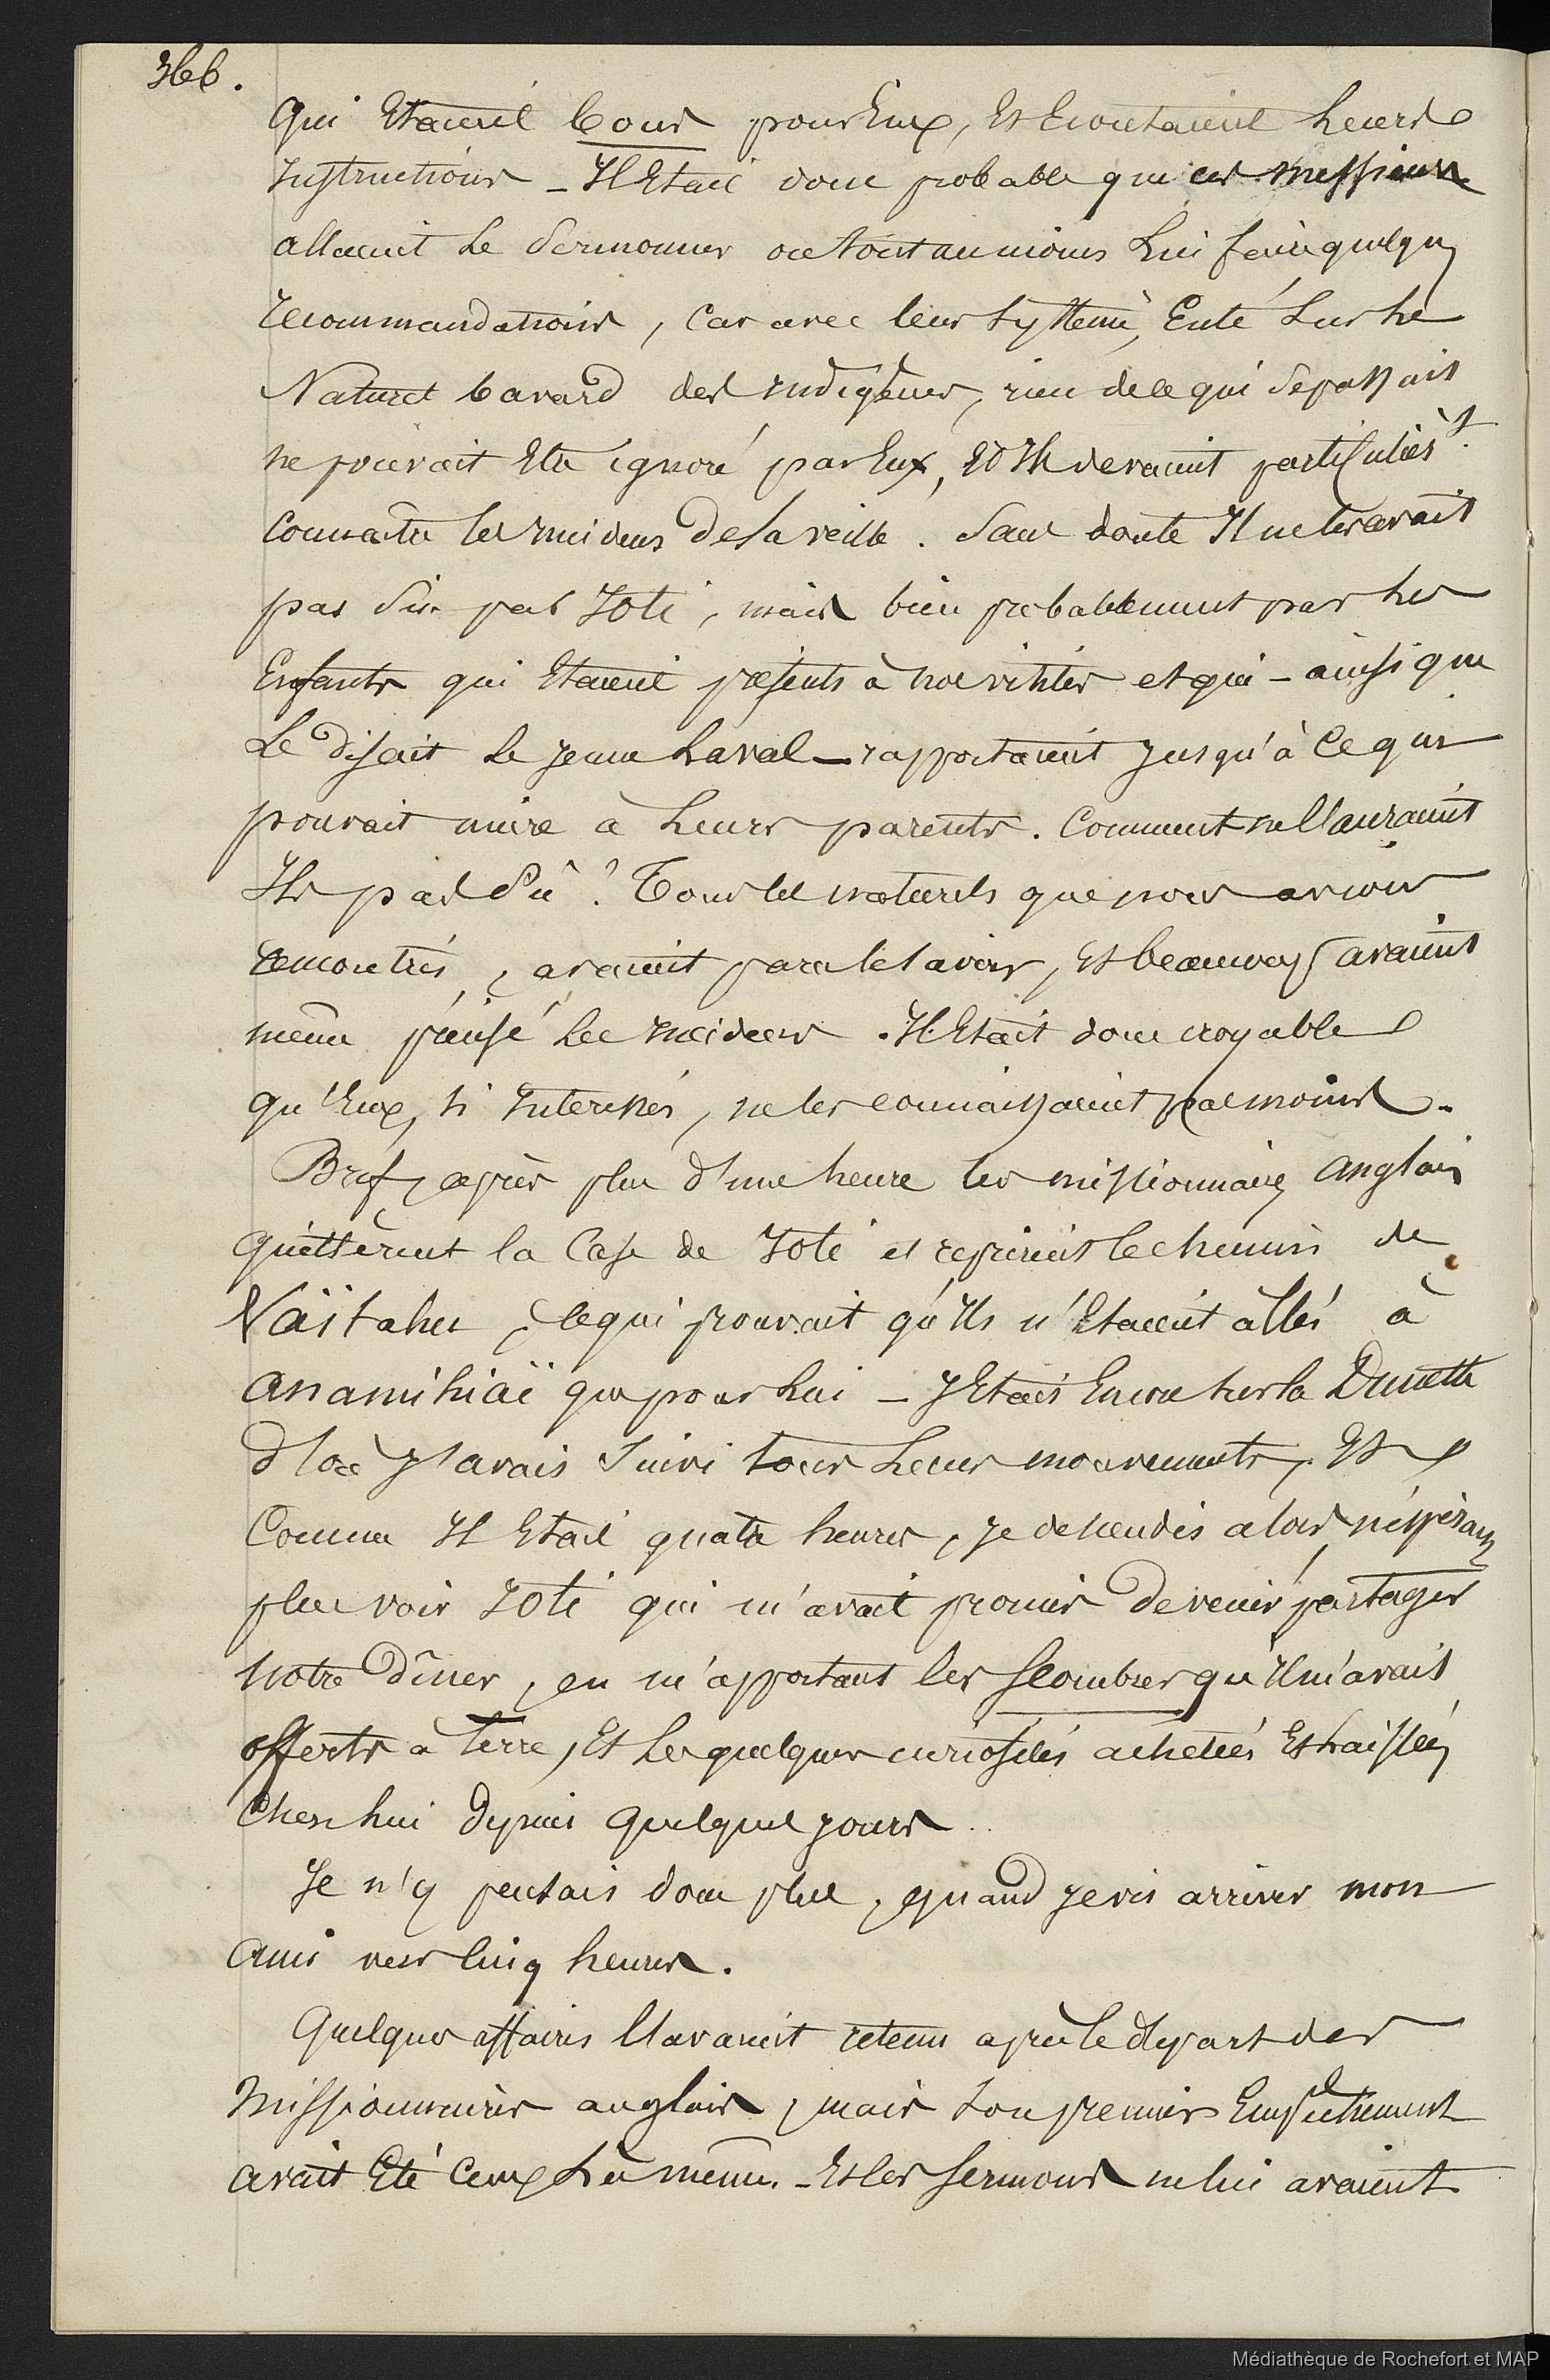 366.
qui Etaient bons pour Eux, Et Ecoutaient Leurs
Instructions _ Il Etait donc probable que ces messieurs
allaient Le Sermonner ou tout au moins Lui faire quelques
recommandations, Car avec leur systême, Enté Sur Le
Naturel bavard des Indigènes, rien de ce qui Se passait
ne pouvait Etre ignoré par Eux, Et Ils devaient particulièrt.
Connaitre les Incidens de La veille. Sans doute Il ne les avait
pas Sû par Zoti, mais bien probablement par Les
Enfants qui Etaient présents à nos visites et qui - ainsi que
Le disait Le Jeune Laval _ rapportaient Jusqu'à Ce qui
pouvait nuire à Leurs parents. Comment ne l'auraient
Ils pas Sû ? Tous les naturels que nous avions
rencontrés, avaient paru le savoir, Et beaucoup avaient
même les Incidens. Il Etait donc croyable
qu'Eux, Si Interessés, ne les connaissaient pas moins.
Bref, après plus d'une heure les missionnaires anglais
quittèrent la Case de Zoti et reprirent le chemin de
Vaïtahu, ce qui prouvait qu'Ils n'Etaient allés à
anamihiaï que pour Lui _ J'Etais Encore sur la Dunette
d'où J'avais Suivi tous Leurs mouvements, Et
Comme Il Etait quatre heures, Je descendis alors, n'éspérant
plus voir Zoti qui m'avait promis de venir partager
notre Dîner, en m'apportant les Scombres qu'Il m'avait
offerts à Terre, Et Les quelques curiosités achetées Et Laissées
Chez Lui depuis quelques Jours.
Je n'y pensais donc plus, quand Je vis arriver mon
ami vers Cinq heures.
Quelques affaires l'avaient retenu après le départ des
Missionnaires anglais, mais Son premier Empêchement
avait Eté Ceux Là même. _ Et les Sermons ne lui avaient
Médiathèque de Rochefort et MAP